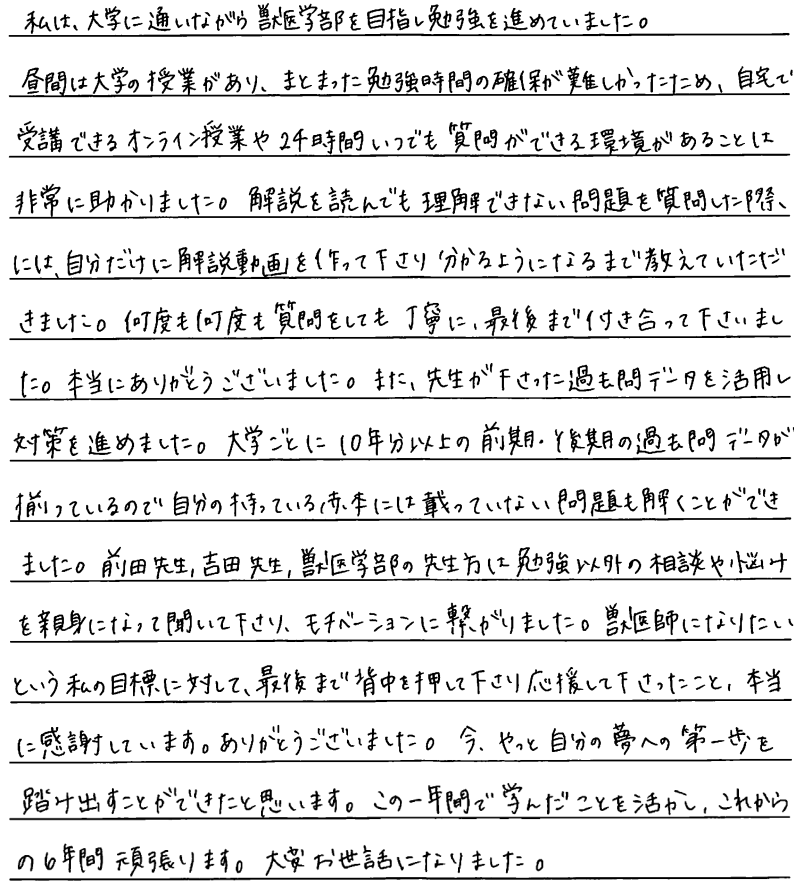 私は、大学に通いながら獣医学部を目指し勉強を進めていました。
昼間は大学の授業があり、まとまった勉強時間の確保が難しかったため、自宅で
受講できるオンライン授業や24時間いつでも質問ができる環境があることは
非常に助かりました。解説を読んでも理解できない問題を質問した際、
には、自分だけに解説動画を作って下さり分かるようになるまで教えていただ
きました。何度も何度も質問をしても丁寧に、最後まで付き合って下さいまし
た。本当にありがとうございました。また、先生が下さった過去問データを活用し
対策を進めました。大学ごとに10年分以上の前期・後期の過去問データが
揃っているので自分の持っている赤本には載っていない問題も解くことができ
ました。前田先生,吉田先生,獣医学部の先生方は勉強以外の相談や悩み
を親身になって聞いて下さり、モチベーションに繋がりました。獣医師になりたい
という私の目標に対して、最後まで背中を押して下さり応援して下さったこと、本当
に感謝しています。ありがとうございました。今、やっと自分の夢への第一歩を
踏み出すことができたと思います。この一年間で学んだことを活かし、これから
の6年間頑張ります。大変お世話になりました。